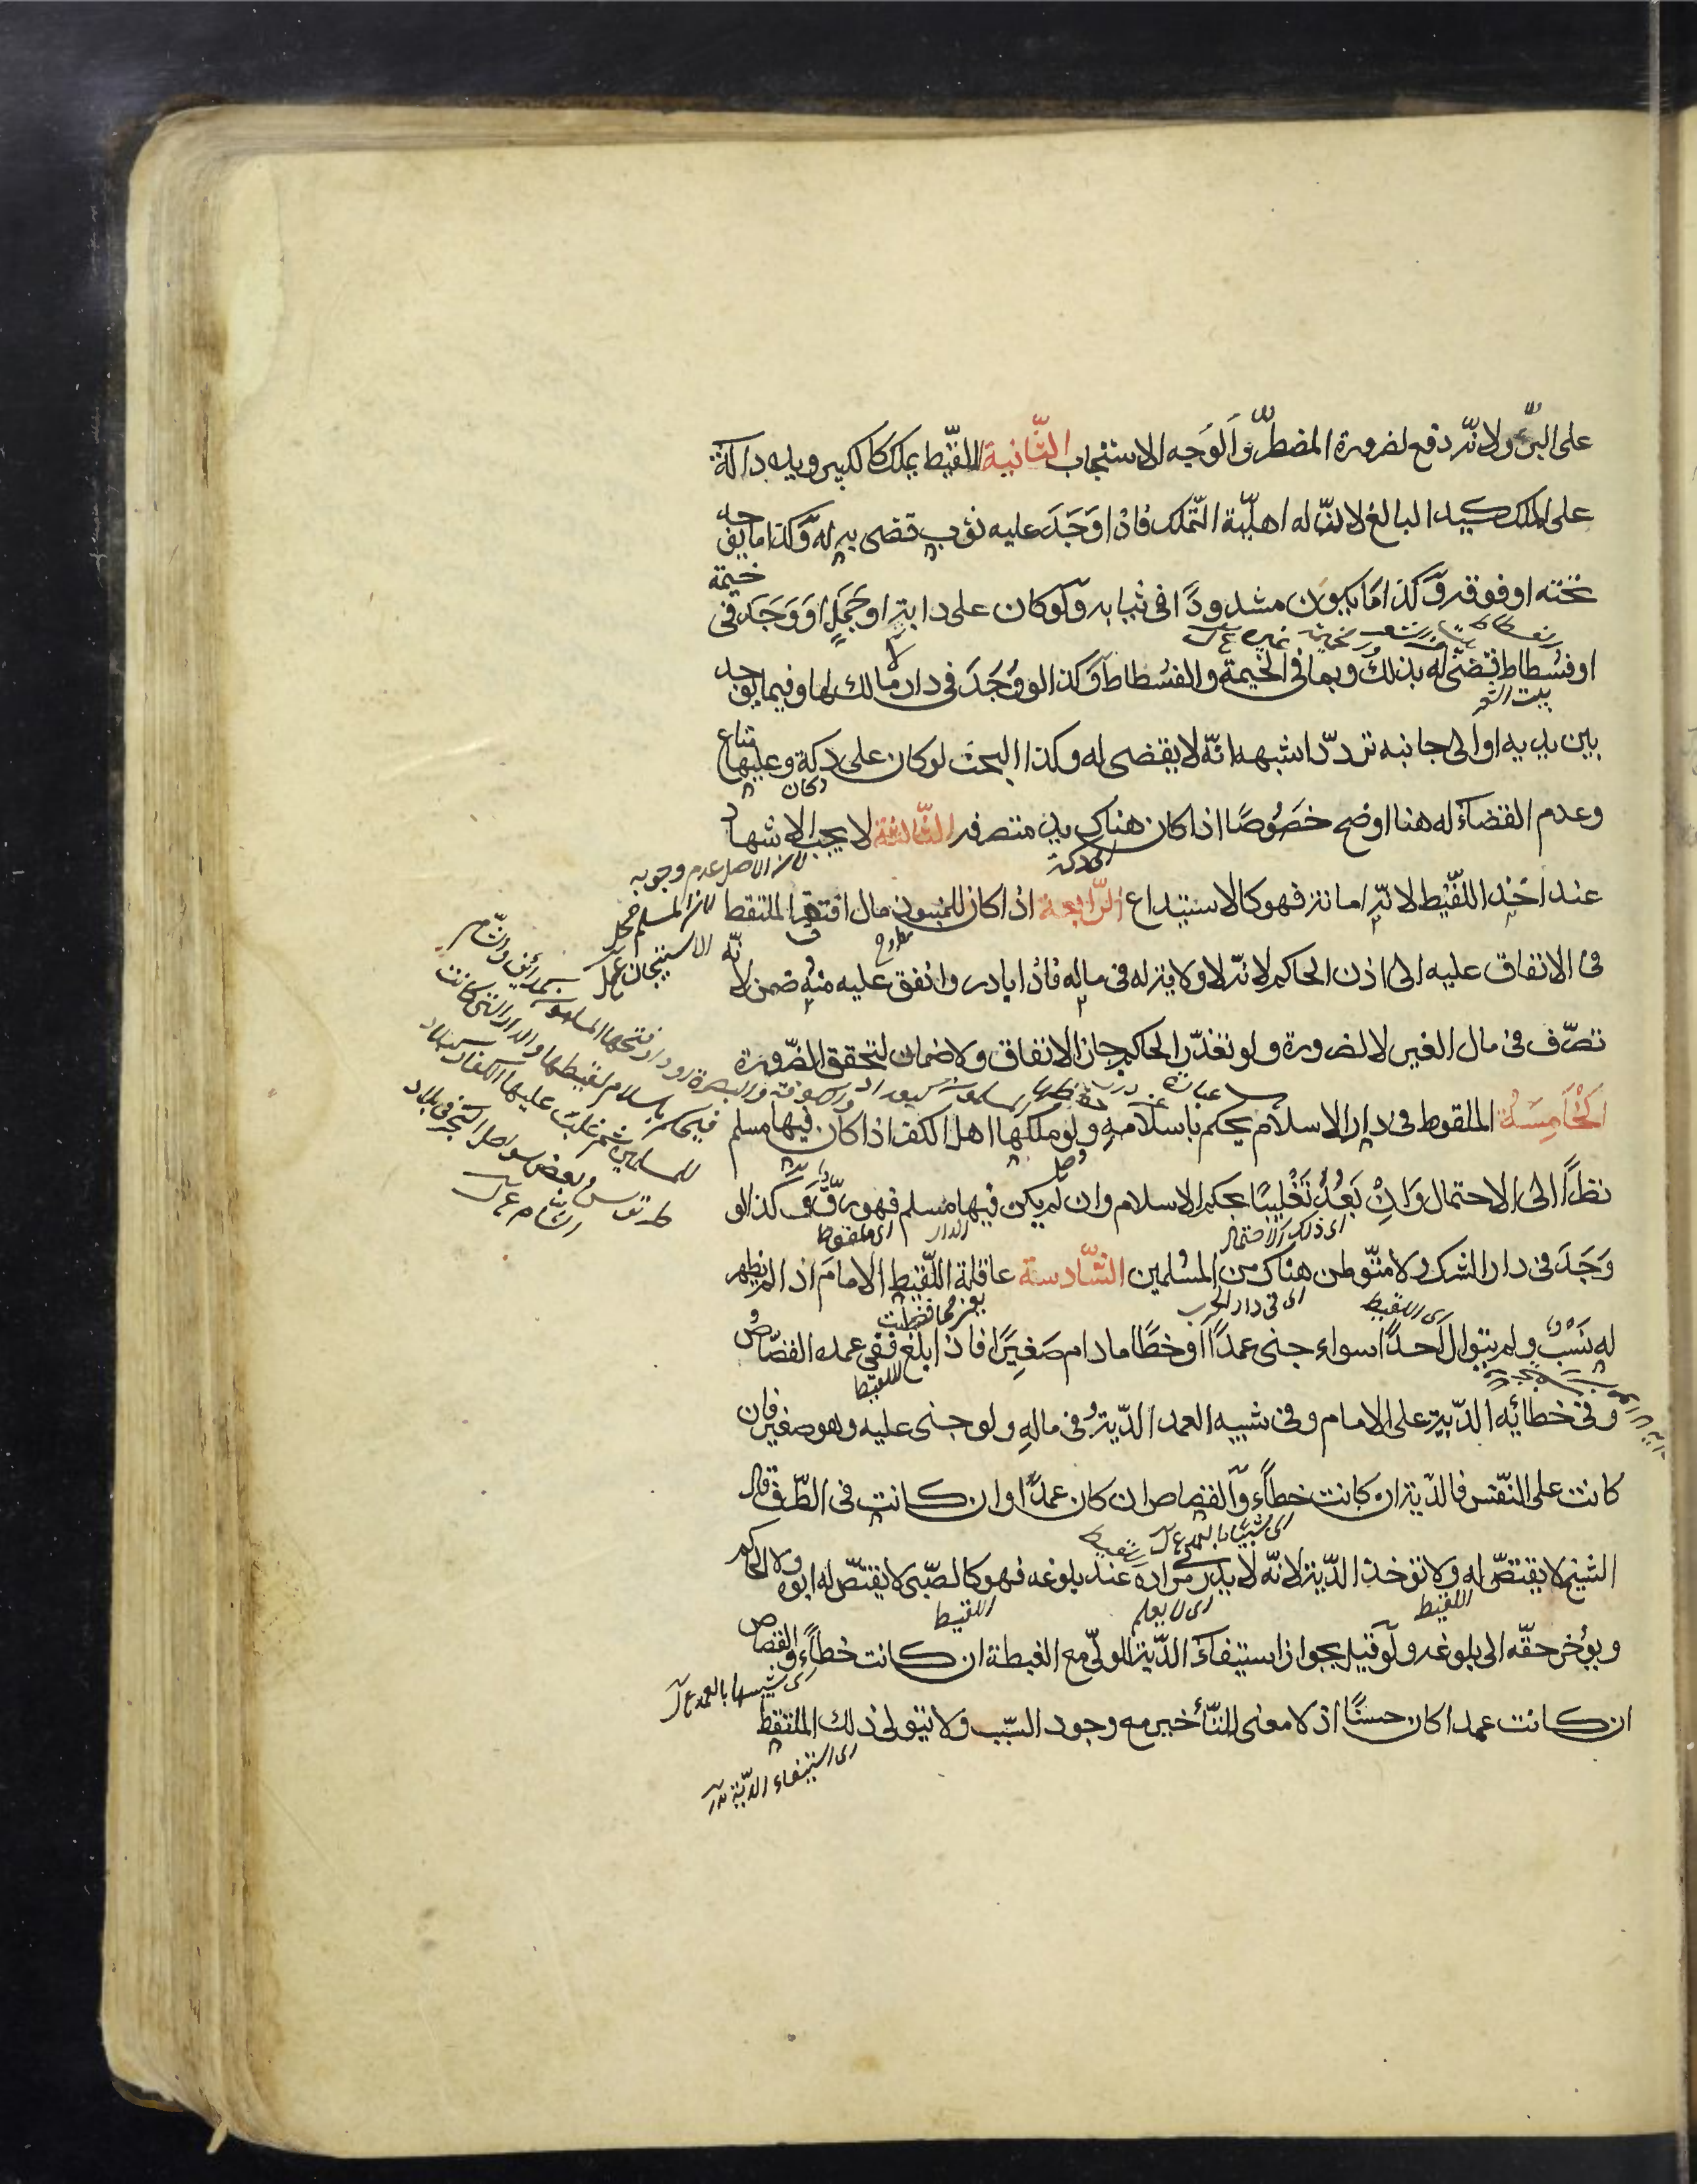 على البرّ ولانّه دفع لضرورة المضطرّ والوجه الاستحباب الثّانية اللقيط يملك كالكبير ويده دالّة
على الملك كيد البالغ لانّ له اهليّة التّملّك فاذا وجد عليه ثوب قضى به له وكذا ما يوجد
تحته او فوقه وكذا ما يكون مشدودًا فى ثيابه ولو كان على دابّة او جمل او وجد فى خيمة
او فسطاط قضى له بذلك وبما فى الخيمة والفسطاط وكذا لو وجد فى دار لا مالك لها وفيما يوجد
بيت الشعر
بين يديه او الى جانبه تردّد اشبهه انّه لا يقضى له وكذا البحث لو كان على دكّة وعليها متاع
دكان
وعدم القضاء له هنا اوضح خصوصًا اذا كان هناك يد متصرفه الثّالثة لا يجب الاشهاد
لان الاصل عدم وجوبه
عند اخذ اللقيط لانّه امانة فهو كالاستيداع الرّابعة اذا كان للمنبوذ مال افتقر الملتقط
فى الانفاق عليه الى اذن الحاكم لانّه لا ولاية له فى ماله فاذا بادر وانفق عليه منه ضمن لانّه
تصرّف فى مال الغير لا لضرورة ولو تعذّر الحاكم جاز الانفاق ولا ضمان لتحقق الضّرورة
الخامسة الملقوط فى دار الاسلام يحكم باسلامه ولو ملكها اهل الكفر اذا كان فيها مسلم
نظرًا الى الاحتمال وان بعد تغليبًا لحكم الاسلام وان لم يكن فيها مسلم فهو رقّ وكذا لو
اى ذلك الاحتمال
الدار
اى ملقوط
وجد فى دار الشرك ولا متوطن هناك من المسلمين السّادسة عاقلة اللّقيط الامام اذا لم يظهر
اى اللقيط
اى فى دار الحرب
له نسب ولم يتوال احدًا سواء جنى عمدًا او خطًا ما دام صغيرًا فاذا بلغ ففى عمده القصاص
اللقيط
وفى خطائه الدّية على الامام وفى شبيه العمد الدّية فى ماله ولو جنى عليه وهو صغير فان
كانت على النّفس فالدّية ان كانت خطاً والقصاص ان كان عمدًا وان كانت فى الطّرف قال
الشيخ لا يقتصّ له ولا تؤخذ الدّية لانّه لا يدرى مراده عند بلوغه فهو كالصّبى لا يقتصّ له ابوه ولا الحاكم
اللقيط
اى لا يعلم
اللقيط
ويؤخر حقّه الى بلوغه ولو قيل بجواز استيفاء الدّية للولىّ مع الغبطة ان كانت خطاً والقصاص
ان كانت عمدا كان حسنًا اذ لا معنى للتّأخير مع وجود السّبب ولا يتولى ذلك الملتقط
اى استيفاء الدّية